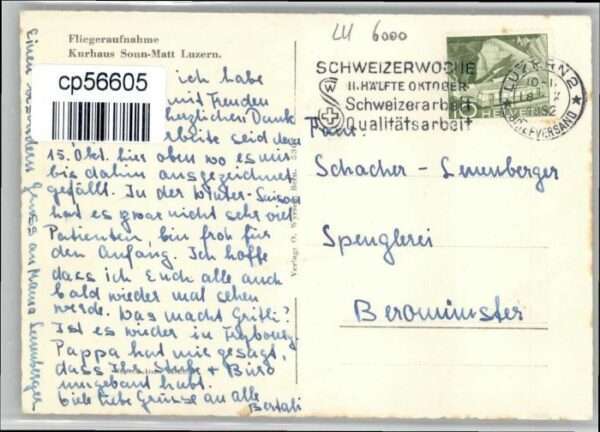 Fliegeraufnahme
Kurhaus Sonn-Matt Luzern.
cp56605
ich habe
mit Freuden
herzlichen Dank
arbeite seid dem
15. Okt. hier oben wo es mir
bis dahin ausgezeichnet
gefällt. In der Winter-Saison
hat es zwar nicht sehr viel
Patienten, bin froh für
den Anfang. Ich hoffe
dass ich Euch alle auch
bald wieder mal sehen
werde. Was macht Gritli?
Ist es wieder in Frybourg
Pappa hat mir gesagt,
dass Ihr Stube + Büro
umgebaut habt.
viele liebe Grüsse an alle
Bertali
Einen besondern Gruss an Mama Leuenberger
Verlag O.
Bern.
LU 6000
SCHWEIZERWOCHE
II. HÄLFTE OKTOBER
Schweizerarbeit
Qualitätsarbeit
LUZERN 2
BRIEFVERSAND
HELVETIA
Frau
Schacher-Leuenberger
Spenglerei
Beromünster